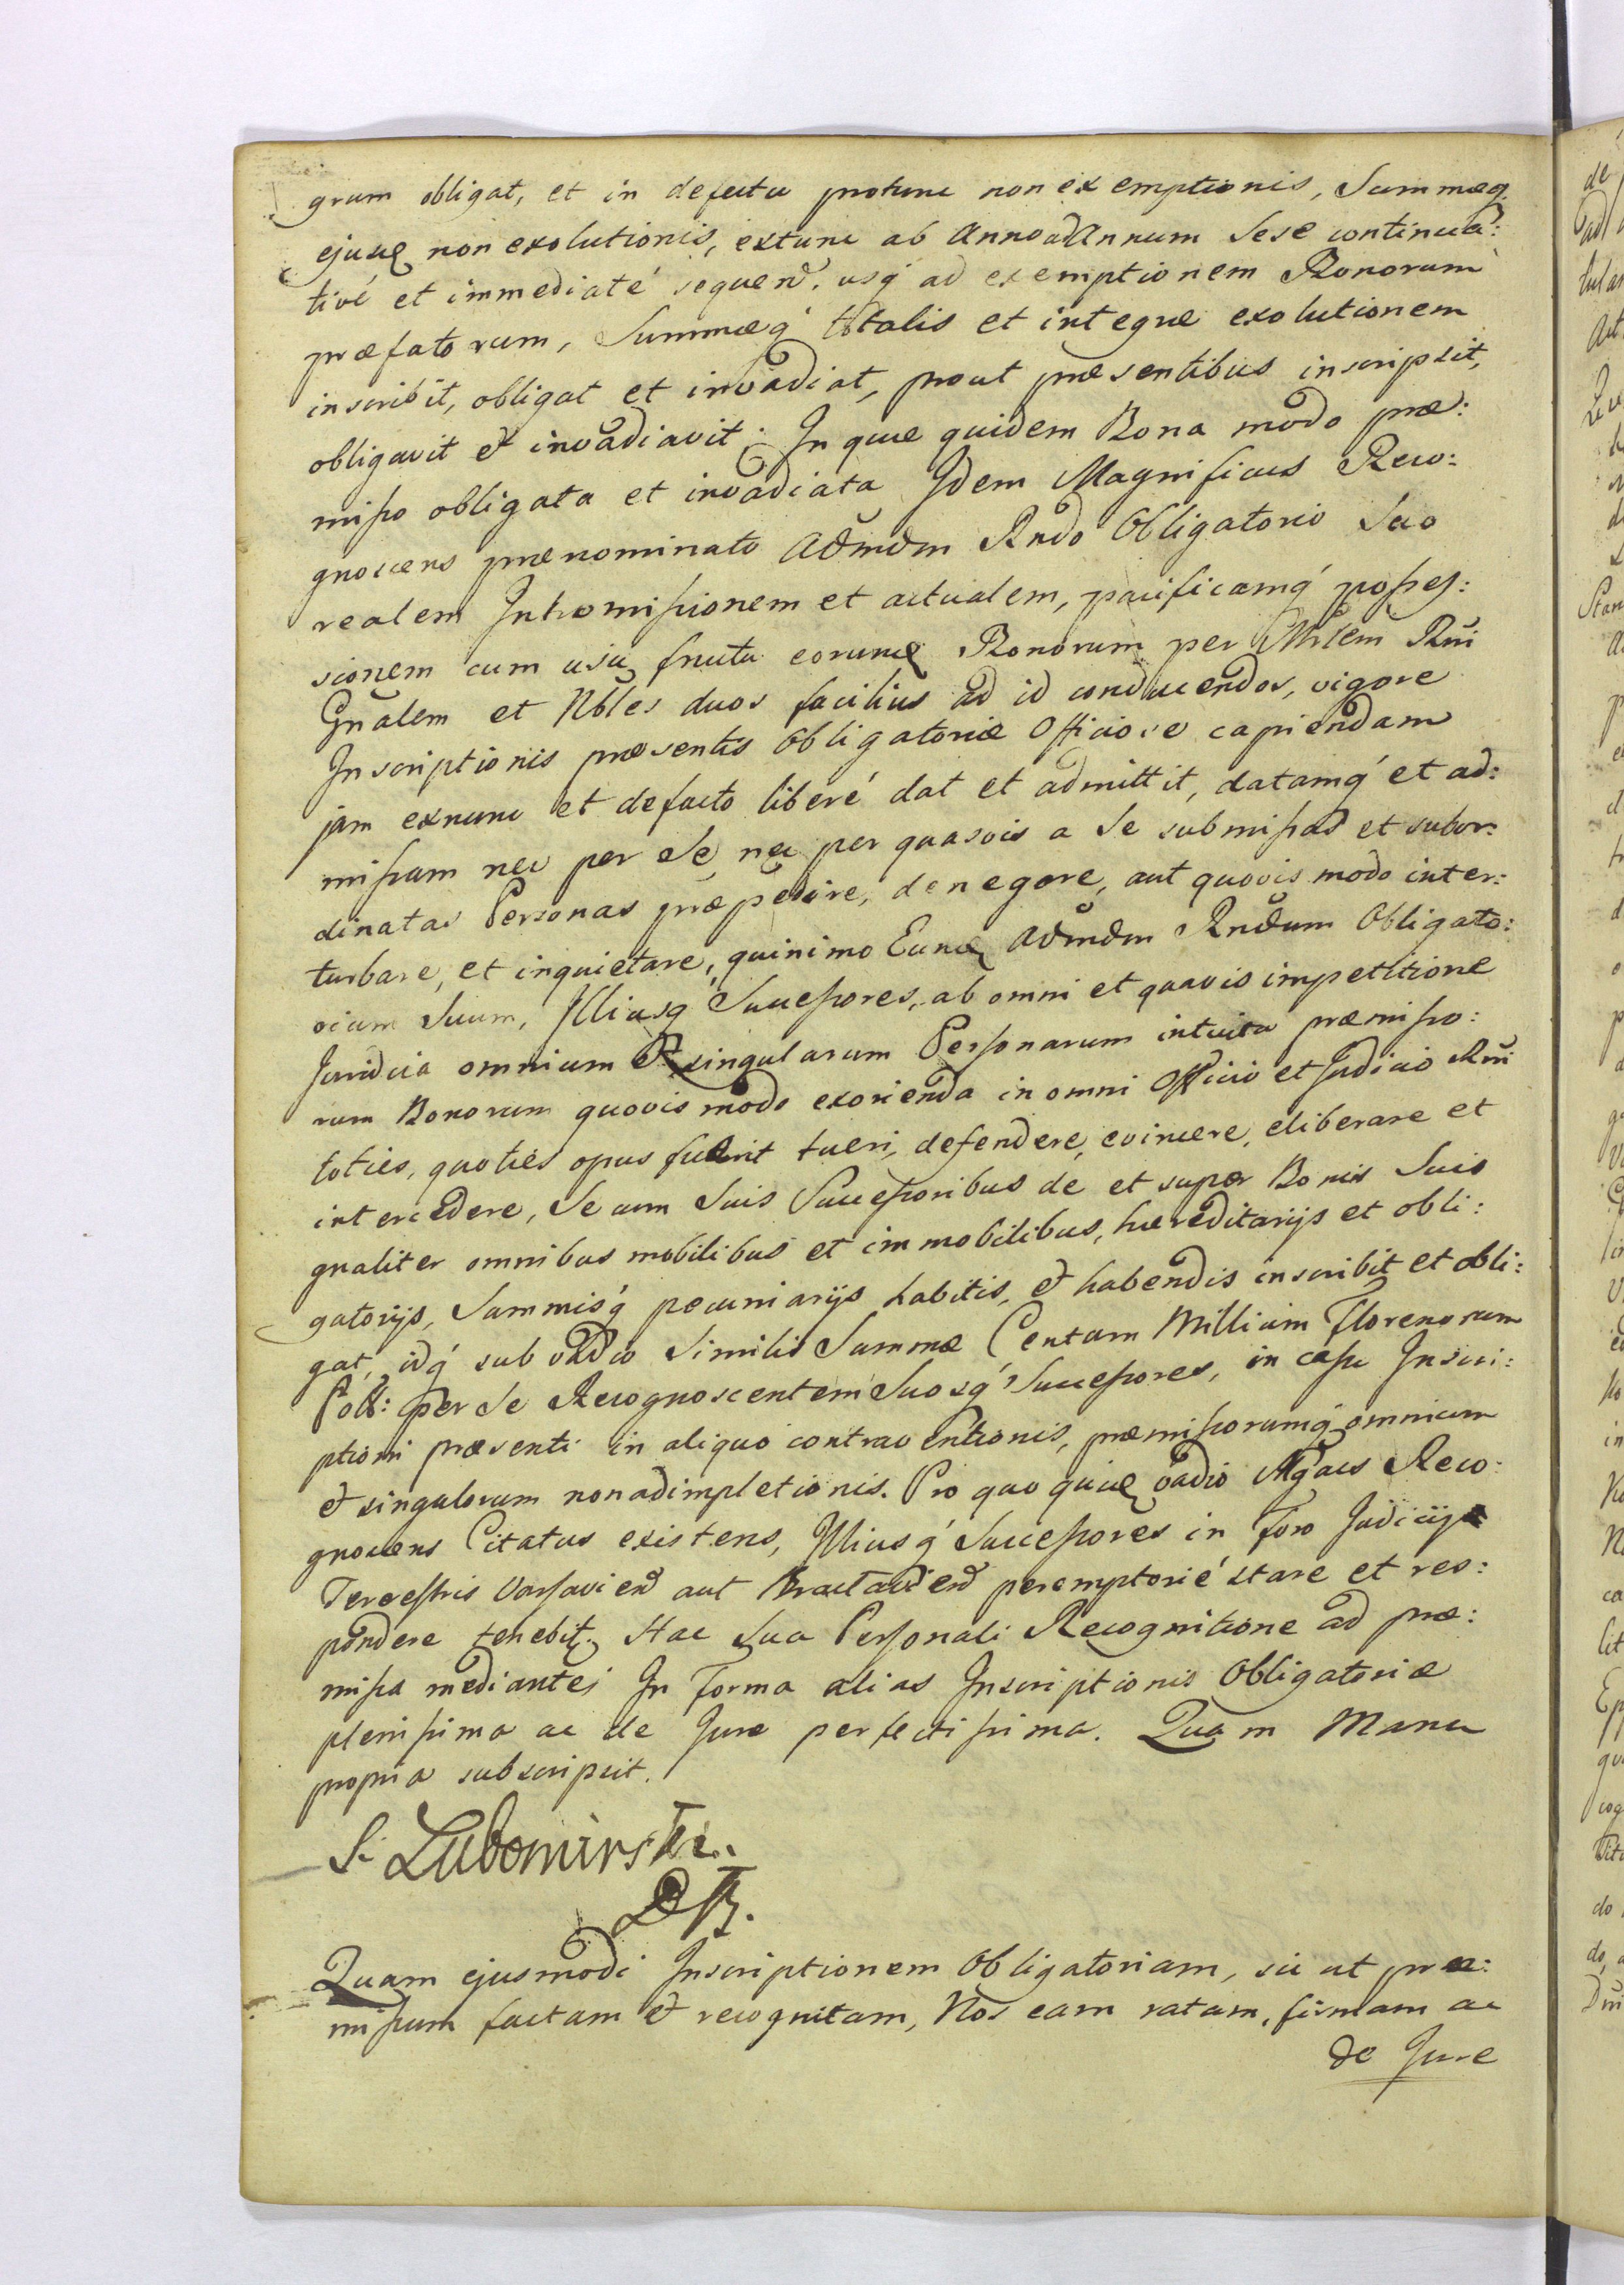 grum obligat, et in defectu protunc non exemptionis, Summæq
ejusꝗ non exolutionis, extunc ab Anno ad Annum Sese continua:
tivé et immediaté sequend. usq' ad exemptionem Bonorum
præfatorum, Summæq' totalis et integræ exolutionem
inscribit, obligat et invadiat, prout præsentibus inscripsit,
obligavit et invadiavit. In quæ quidem Bona modo præ:
misso obligata et invadiata Idem Magnificus Reco:
gnoscens prænominato Admdm Rndo Obligatorio Suo
realem Intromissionem et actualem, pacificamq' posses:
sionem cum usu fructu eorunꝗ Bonorum per Mrlem Rni
Gnalem et Nbles duos facilius ad id conducendos, vigore
Inscriptionis præsentis Obligatoriæ Officiose capiendam
jam exnunc et defacto liberé dat et admittit, datamq' et ad:
missam nec per Se nec per quasvis a Se submissas et subor:
dinatas Personas præpedire, denegare, aut quovis modo inter:
turbare, et inquietare, quinimo Eunꝗ Admdm Rndum Obligato:
rium Suum, Illiusq' Successores, ab omni et quavis impetitione
Juridica omnium et singularum Personarum intuitu præmisso:
rum Bonorum quovis modo exorienda in omni Officio et Judicio Rni
toties, quoties opus fuerit tueri, defendere, evincere, eliberare et
intercedere, Se cum Suis Successoribus de et super Bonis Suis
gnaliter omnibus mobilibus et immobilibus, hæreditarijs et obli:
gatorijs, Summisq' pecuniarijs habitis, et habendis inscribit et obli:
gat, idq' sub vadio Similis Summæ Centum Millium Florenorum
Poll: per Se Recognoscentem Suosq' Successores, in casu Inscri:
ptioni præsenti in aliquo contraventionis, præmissorumq' omnium
et singulorum nonadimpletionis. Pro quo quiꝗ vadio Mgcus Reco:
gnoscens Citatus existens, Illiusq' Successores in Foro Judicij
Terrestris Varsaviend aut Braclaviend peremptorié stare et res:
pondere tenebit. Hac Sua Personali Recognitione ad præ:
missa mediante; In Forma alias Inscriptionis Obligatoriæ
plenissima ac de Jure perfectissima. Quam Manu
propria subscripsit.
S. Lubomirski.
Quam ejusmodi Inscriptionem Obligatoriam, sic ut præ:
missum factam et recognitam, Nos eam ratam, firmam ac
de Jure